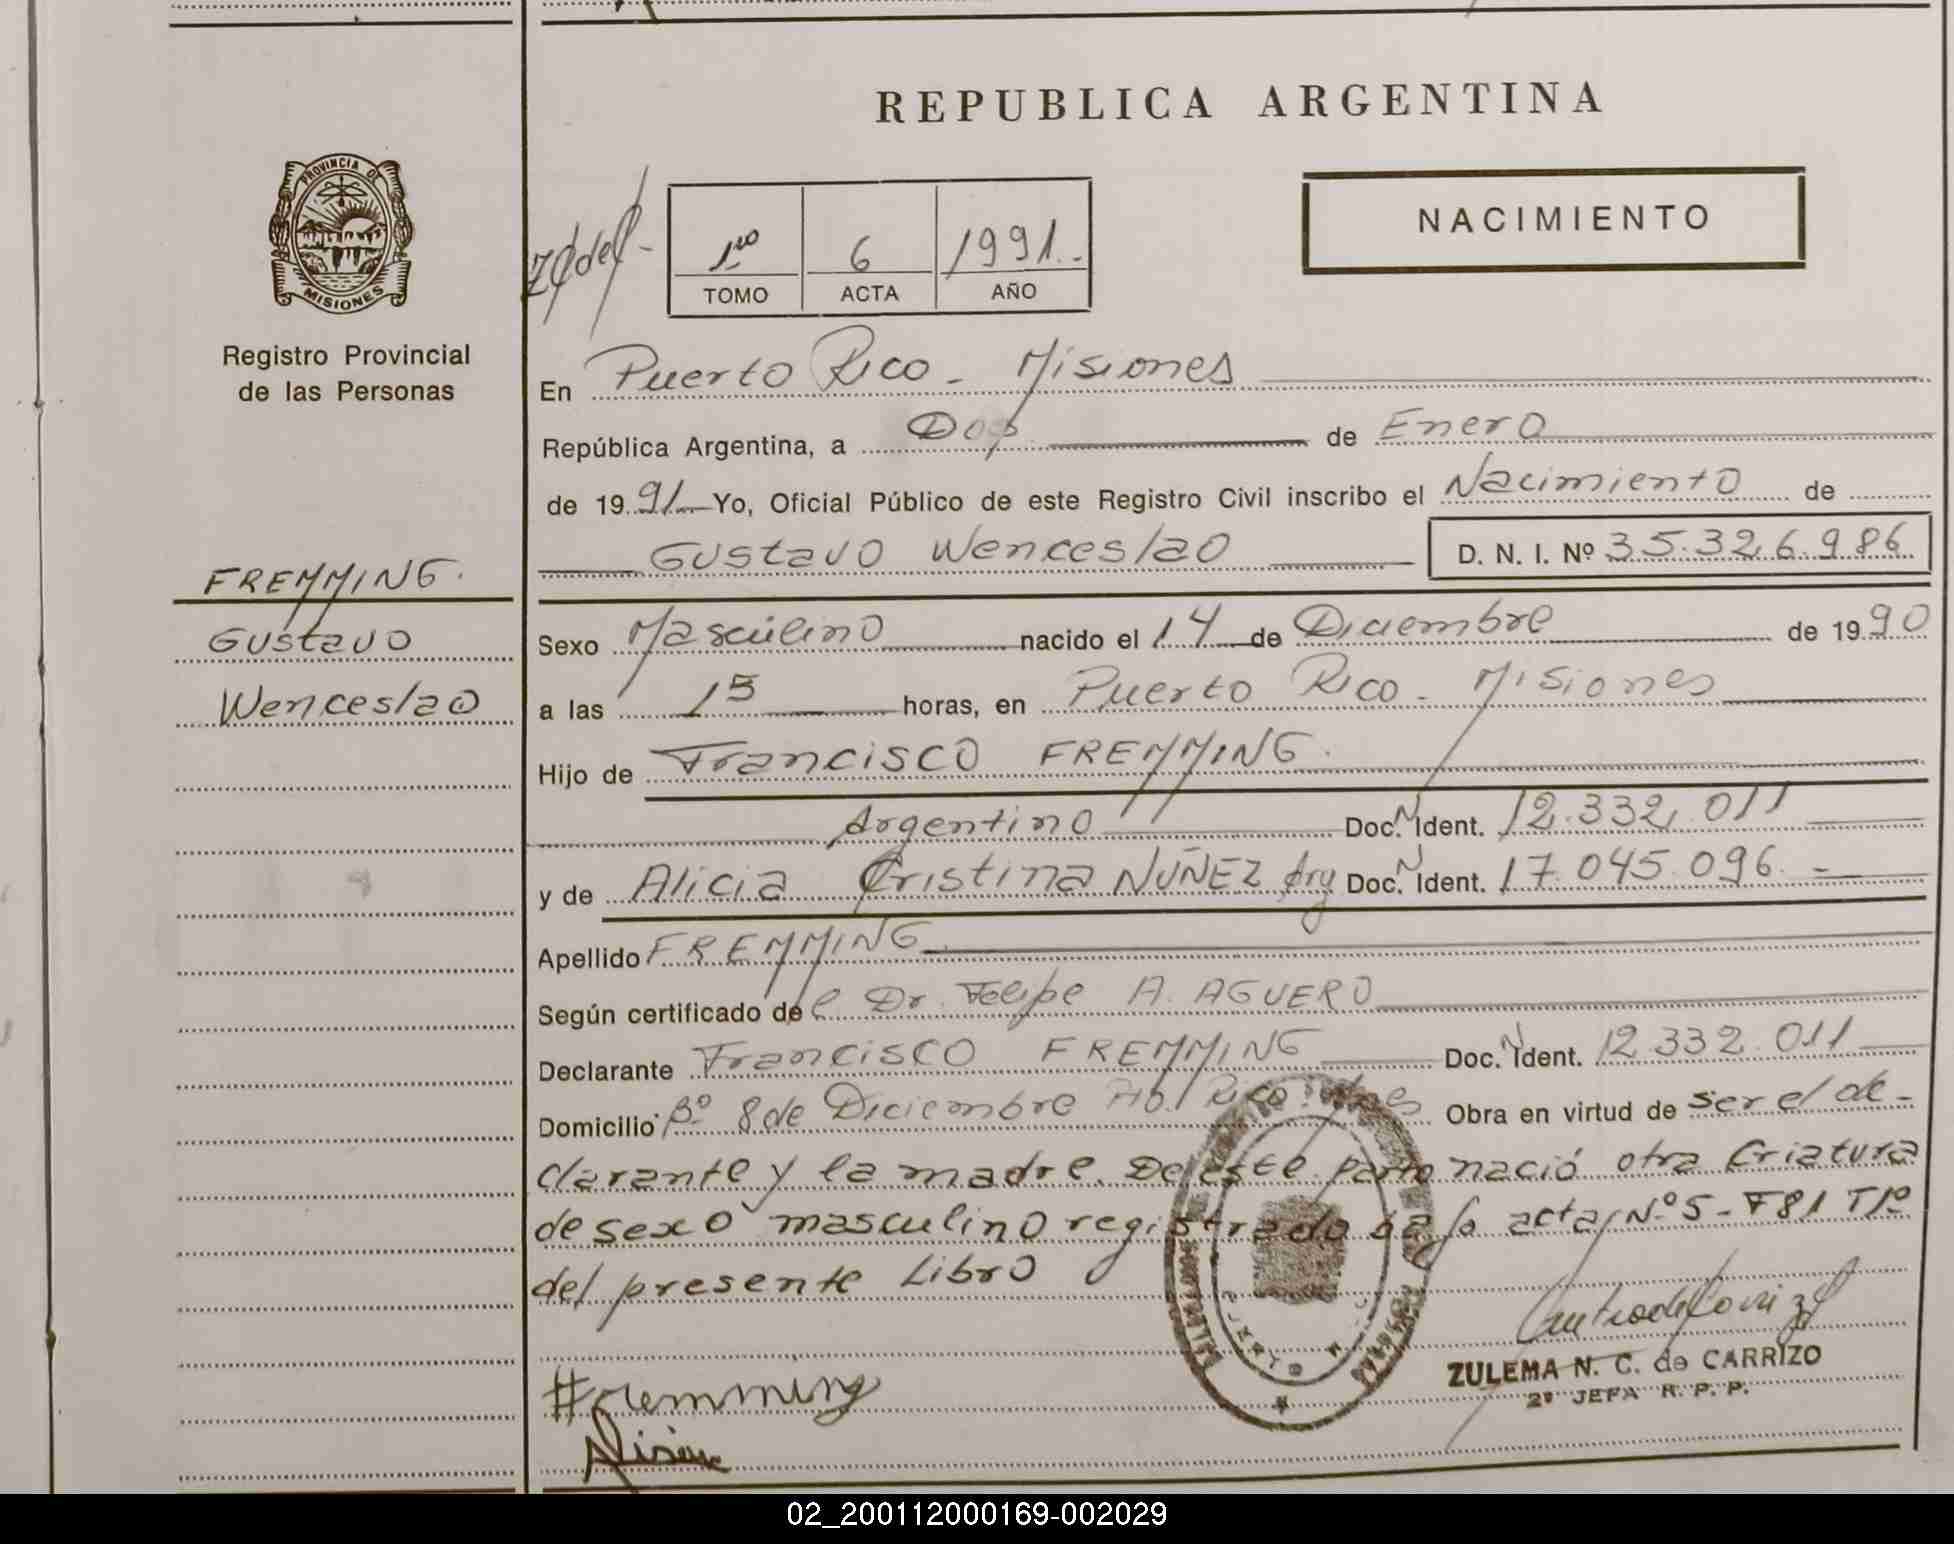 REPUBLICA ARGENTINA
PROVINCIA DE
MISIONES
Registro Provincial
de las Personas
1ro 6 1991.-
TOMO ACTA AÑO
NACIMIENTO
En Puerto Rico - Misiones
República Argentina, a Dos de Enero
de 1991 Yo, Oficial Público de este Registro Civil inscribo el Nacimiento de
Gustavo Wenceslao D. N. I. Nº 35.326.986
FREMMING.
Gustavo
Wenceslao
Sexo Masculino nacido el 14 de Diciembre de 1990
a las 15 horas, en Puerto Rico - Misiones
Hijo de Francisco FREMMING.
Argentino Doc. N Ident. 12.332.011
y de Alicia Cristina NUÑEZ Arg Doc. N Ident. 17.045.096.-
Apellido FREMMING.
Según certificado del Dr. Felipe A. AGUERO
Declarante Francisco FREMMING Doc. N Ident. 12.332.011
Domicilio Bº 8 de Diciembre Rico Obra en virtud de ser el de-
clarante y la madre. De este parto nació otra Criatura
de sexo masculino registrado bajo acta Nº 5 - F81 T1º
del presente Libro
Fremming
ZULEMA N. C. de CARRIZO
2º JEFA R. P. P.
02_200112000169-002029